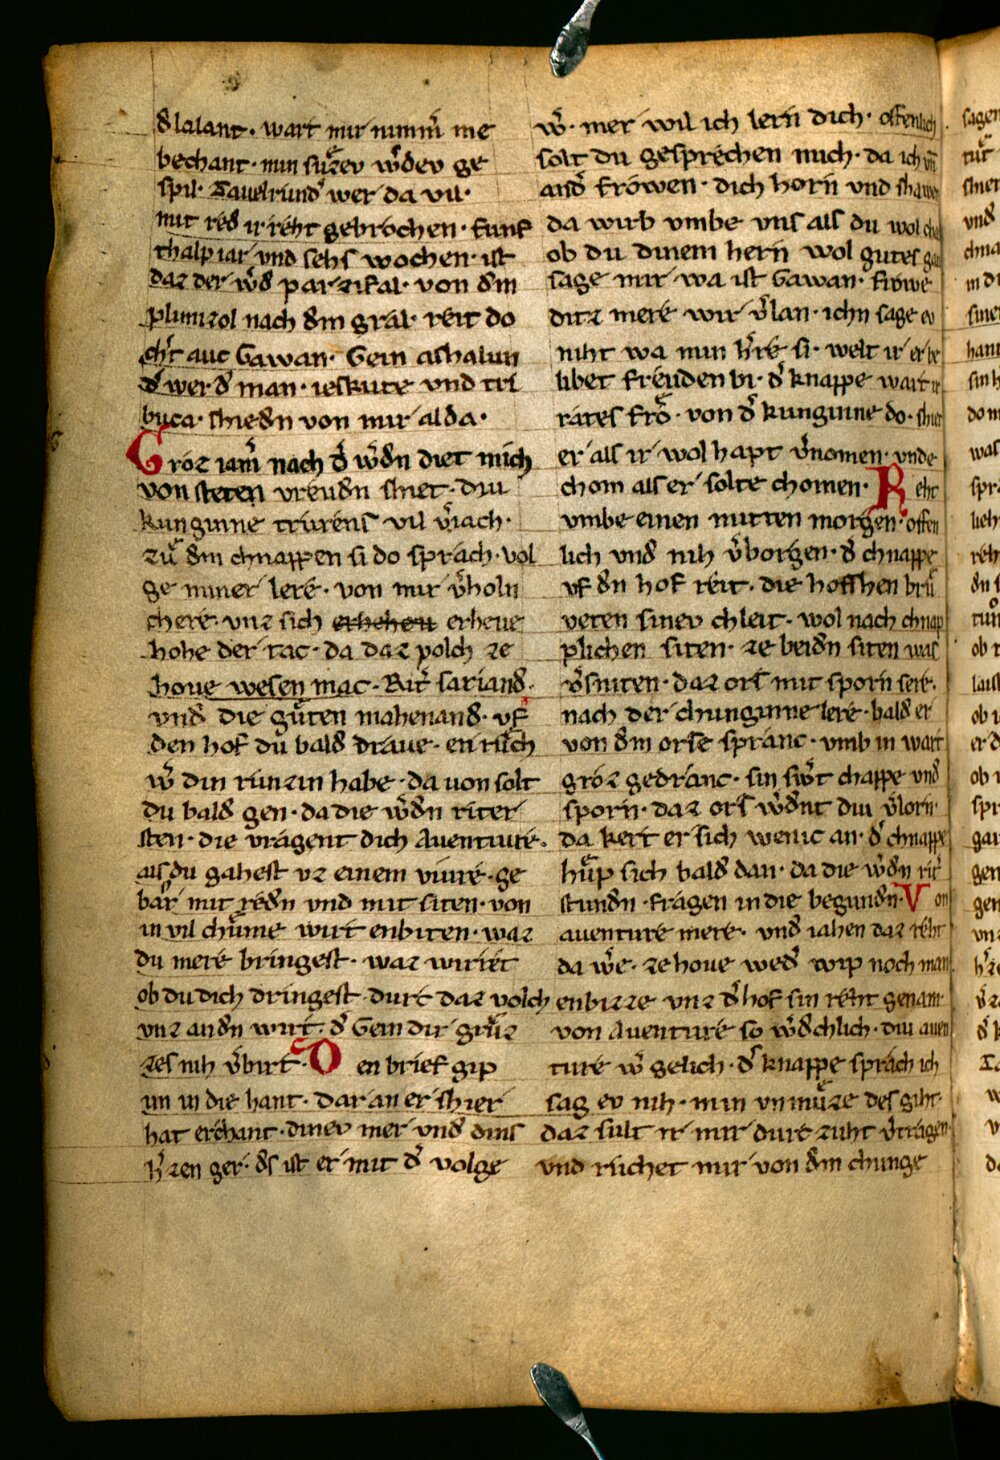 dˢ lalant · wart mir nimmˢ me
bechant · min suͤzev wˢdev ge
spil · Tauelrundˢ wer da vil ·
mit redˢ ir reht gebrochen · funf
thalp iar vnd sehs wochen · ist
daz der wˢdˢ parzifal · von dem
plimizol nach dem gral · reit do
chˢt auc Gawan · Gein ashalun
dˢ werdˢ man · ieskute vnd tri
buca · shieden von mir alda ·
Groz iamˢ nach dˢ wˢden diet mich
von steten vreuden shiet · Diu
kunginne trurens vil vˢiach ·
zuͤ dem chnappen si do sprach · vol
ge miner lere · von mir vˢholn
chere · vnz sich erheben erheue
hohe der tac · da daz volch ze
houe wesen mac · Ritˢ sariandˢ ·
vndˢ die guͤten mahenandˢ · vf
den hof du baldˢ draue · en rusch
wˢ din runzin habe · da von solt
du baldˢ gen · da die wˢden riter
sten · die vragent dich Auenture ·
als du gahest vz einem viure · ge
bar mit reden vnd mit siten · von
in vil chuͤme wirt enbiten · waz
du mere bringest · waz wirret
ob du dich dringest · durc daz volch
vnz an den wirt · dˢ Gein dir gruͤz
zes nih vˢbirt · Den brief gip
im in die hant · dar an er shier
hat erchant · dinev mer vndˢ dins
hˢzen ger · des ist er mit dˢ volge
wˢ · mer wil ich lern dich · offenlich
solt du gesprechen mich · da ich vnͥ
andˢ frowen · dich horn vnd shawen
da wirb vmbe vns als du wol
ob du dinem hern wol gutes
sage mir wa ist Gawan · frowe
ditz mere wir vˢlan · ichn sage ev
niht wa min hˢre si · welt ir er be
libet freuden bi · dˢ knappe wart
rates fro · von dˢ kunginne do · shiet
er als ir wol hapt vˢnomen · vnde
chom als er solte chomen · Reht
vmbe einen mitten morgen · offen
lich vndˢ nih vˢborgen · dˢ chnappe
vf den hof reit · die hoffhen bruͤ
veten sinev chleit · wol nach chnap
plichen siten · ze beiden siten was
vˢsniten · daz ors mit sporn sere ·
nach der chunginne lere · baldˢ er
von dem orse spranc · vmb in wart
groz gedranc · sin swˢt chappe vndˢ
sporn · daz ors wˢdent diu vˢlorn
da kert er sich wenic an · dˢ chnappe
huͤp sich baldˢ dan · da die wˢden ritˢ
stunden · fragen in die begunden · Von
auenture mere · vndˢ iahen daz reht
da wˢe · ze houe wedˢ wip noch man
enbizze vnz dˢ hof sin reht genam
von Auenture so wˢdchlich · diu auen
ture wˢ gelich · dˢ knappe sprach ich
sag ev nih · min vnmuͤze des giht ·
daz sult ir mir durc zuht vˢtragen ·
vnd ruchet mir von dem chunge